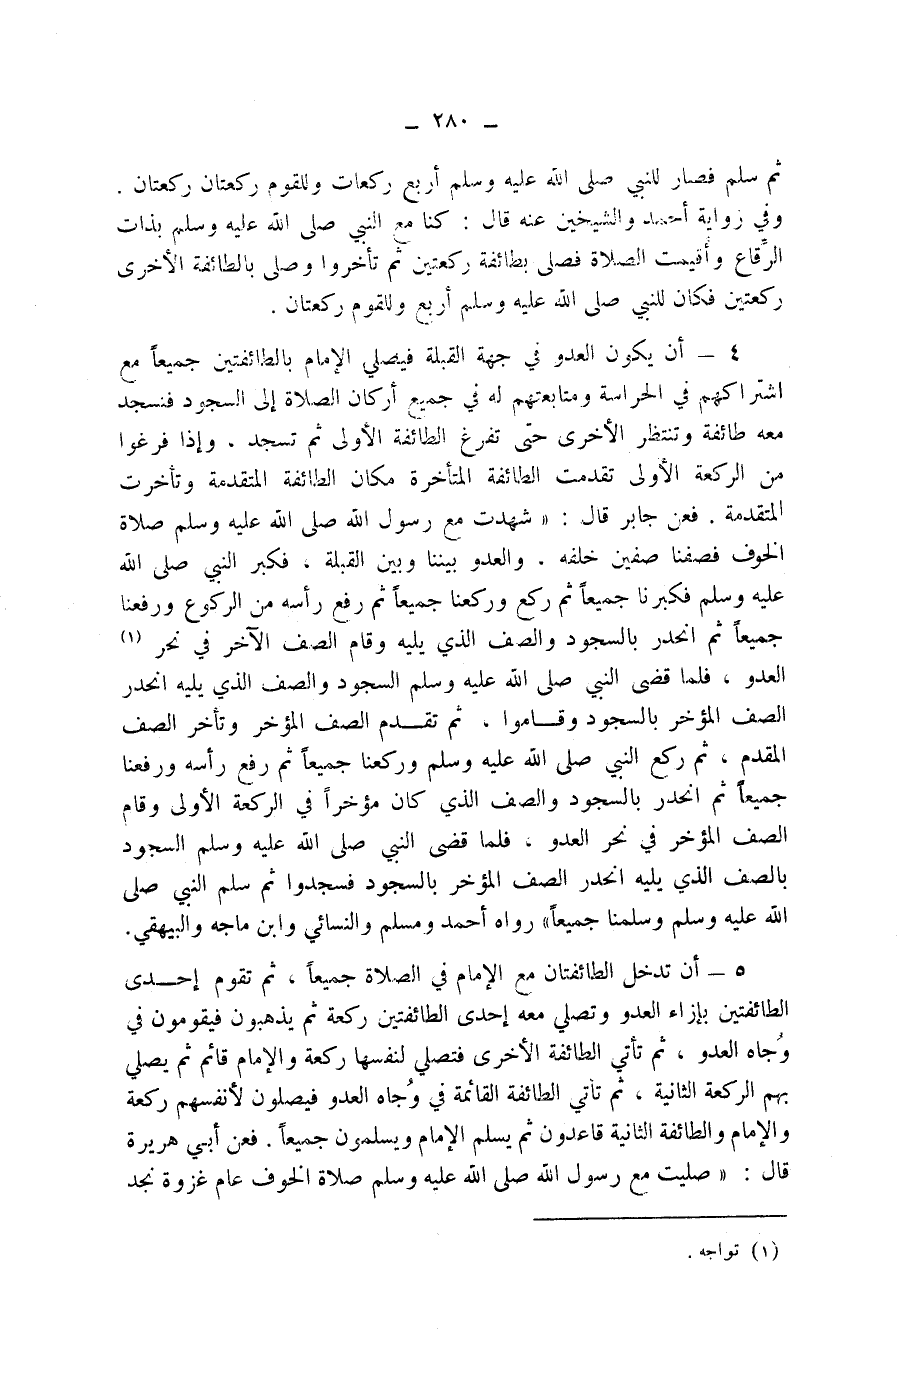 ــ ٢٨٠ ــ
ثم سلم فصار للنبي صلى الله عليه وسلم أربع ركعات وللقوم ركعتان ركعتان .
وفي رواية أحمد والشيخين عنه قال : كنا مع النبي صلى الله عليه وسلم بذات
الرِّقاع وأقيمت الصلاة فصلى بطائفة ركعتين ثم تأخروا وصلى بالطائفة الأخرى
ركعتين فكان للنبي صلى الله عليه وسلم أربع وللقوم ركعتان .
٤ – أن يكون العدو في جهة القبلة فيصلي الإمام بالطائفتين جميعاً مع
اشتراكهم في الحراسة ومتابعتهم له في جميع أركان الصلاة إلى السجود فتسجد
معه طائفة وتنتظر الأخرى حتى تفرغ الطائفة الأولى ثم تسجد . وإذا فرغوا
من الركعة الأولى تقدمت الطائفة المتأخرة مكان الطائفة المتقدمة وتأخرت
المتقدمة . فعن جابر قال : « شهدت مع رسول الله صلى الله عليه وسلم صلاة
الخوف فصفنا صفين خلفه . والعدو بيننا وبين القبلة ، فكبر النبي صلى الله
عليه وسلم فكبرنا جميعاً ثم ركع وركعنا جميعاً ثم رفع رأسه من الركوع ورفعنا
جميعاً ثم انحدر بالسجود والصف الذي يليه وقام الصف الآخر في نحر (١)
العدو ، فلما قضى النبي صلى الله عليه وسلم السجود والصف الذي يليه انحدر
الصف المؤخر بالسجود وقـــاموا . ثم تقـــدم الصف المؤخر وتأخر الصف
المقدم ، ثم ركع النبي صلى الله عليه وسلم وركعنا جميعاً ثم رفع رأسه ورفعنا
جميعاً ثم انحدر بالسجود والصف الذي كان مؤخراً في الركعة الأولى وقام
الصف المؤخر في نحر العدو ، فلما قضى النبي صلى الله عليه وسلم السجود
بالصف الذي يليه انحدر الصف المؤخر بالسجود فسجدوا ثم سلم النبي صلى
الله عليه وسلم وسلمنا جميعاً» رواه أحمد ومسلم والنسائي وابن ماجه والبيهقي.
٥ – أن تدخل الطائفتان مع الإمام في الصلاة جميعاً ، ثم تقوم إحـــدى
الطائفتين بإزاء العدو وتصلي معه إحدى الطائفتين ركعة ثم يذهبون فيقومون في
وُجاه العدو ، ثم تأتي الطائفة الأخرى فتصلي لنفسها ركعة والإمام قائم ثم يصلي
بهم الركعة الثانية ، ثم تأتي الطائفة القائمة في وُجاه العدو فيصلون لأنفسهم ركعة
والإمام والطائفة الثانية قاعدون ثم يسلم الإمام ويسلمون جميعاً . فعن أبي هريرة
قال : « صليت مع رسول الله صلى الله عليه وسلم صلاة الخوف عام غزوة نجد
(١) تواجه .